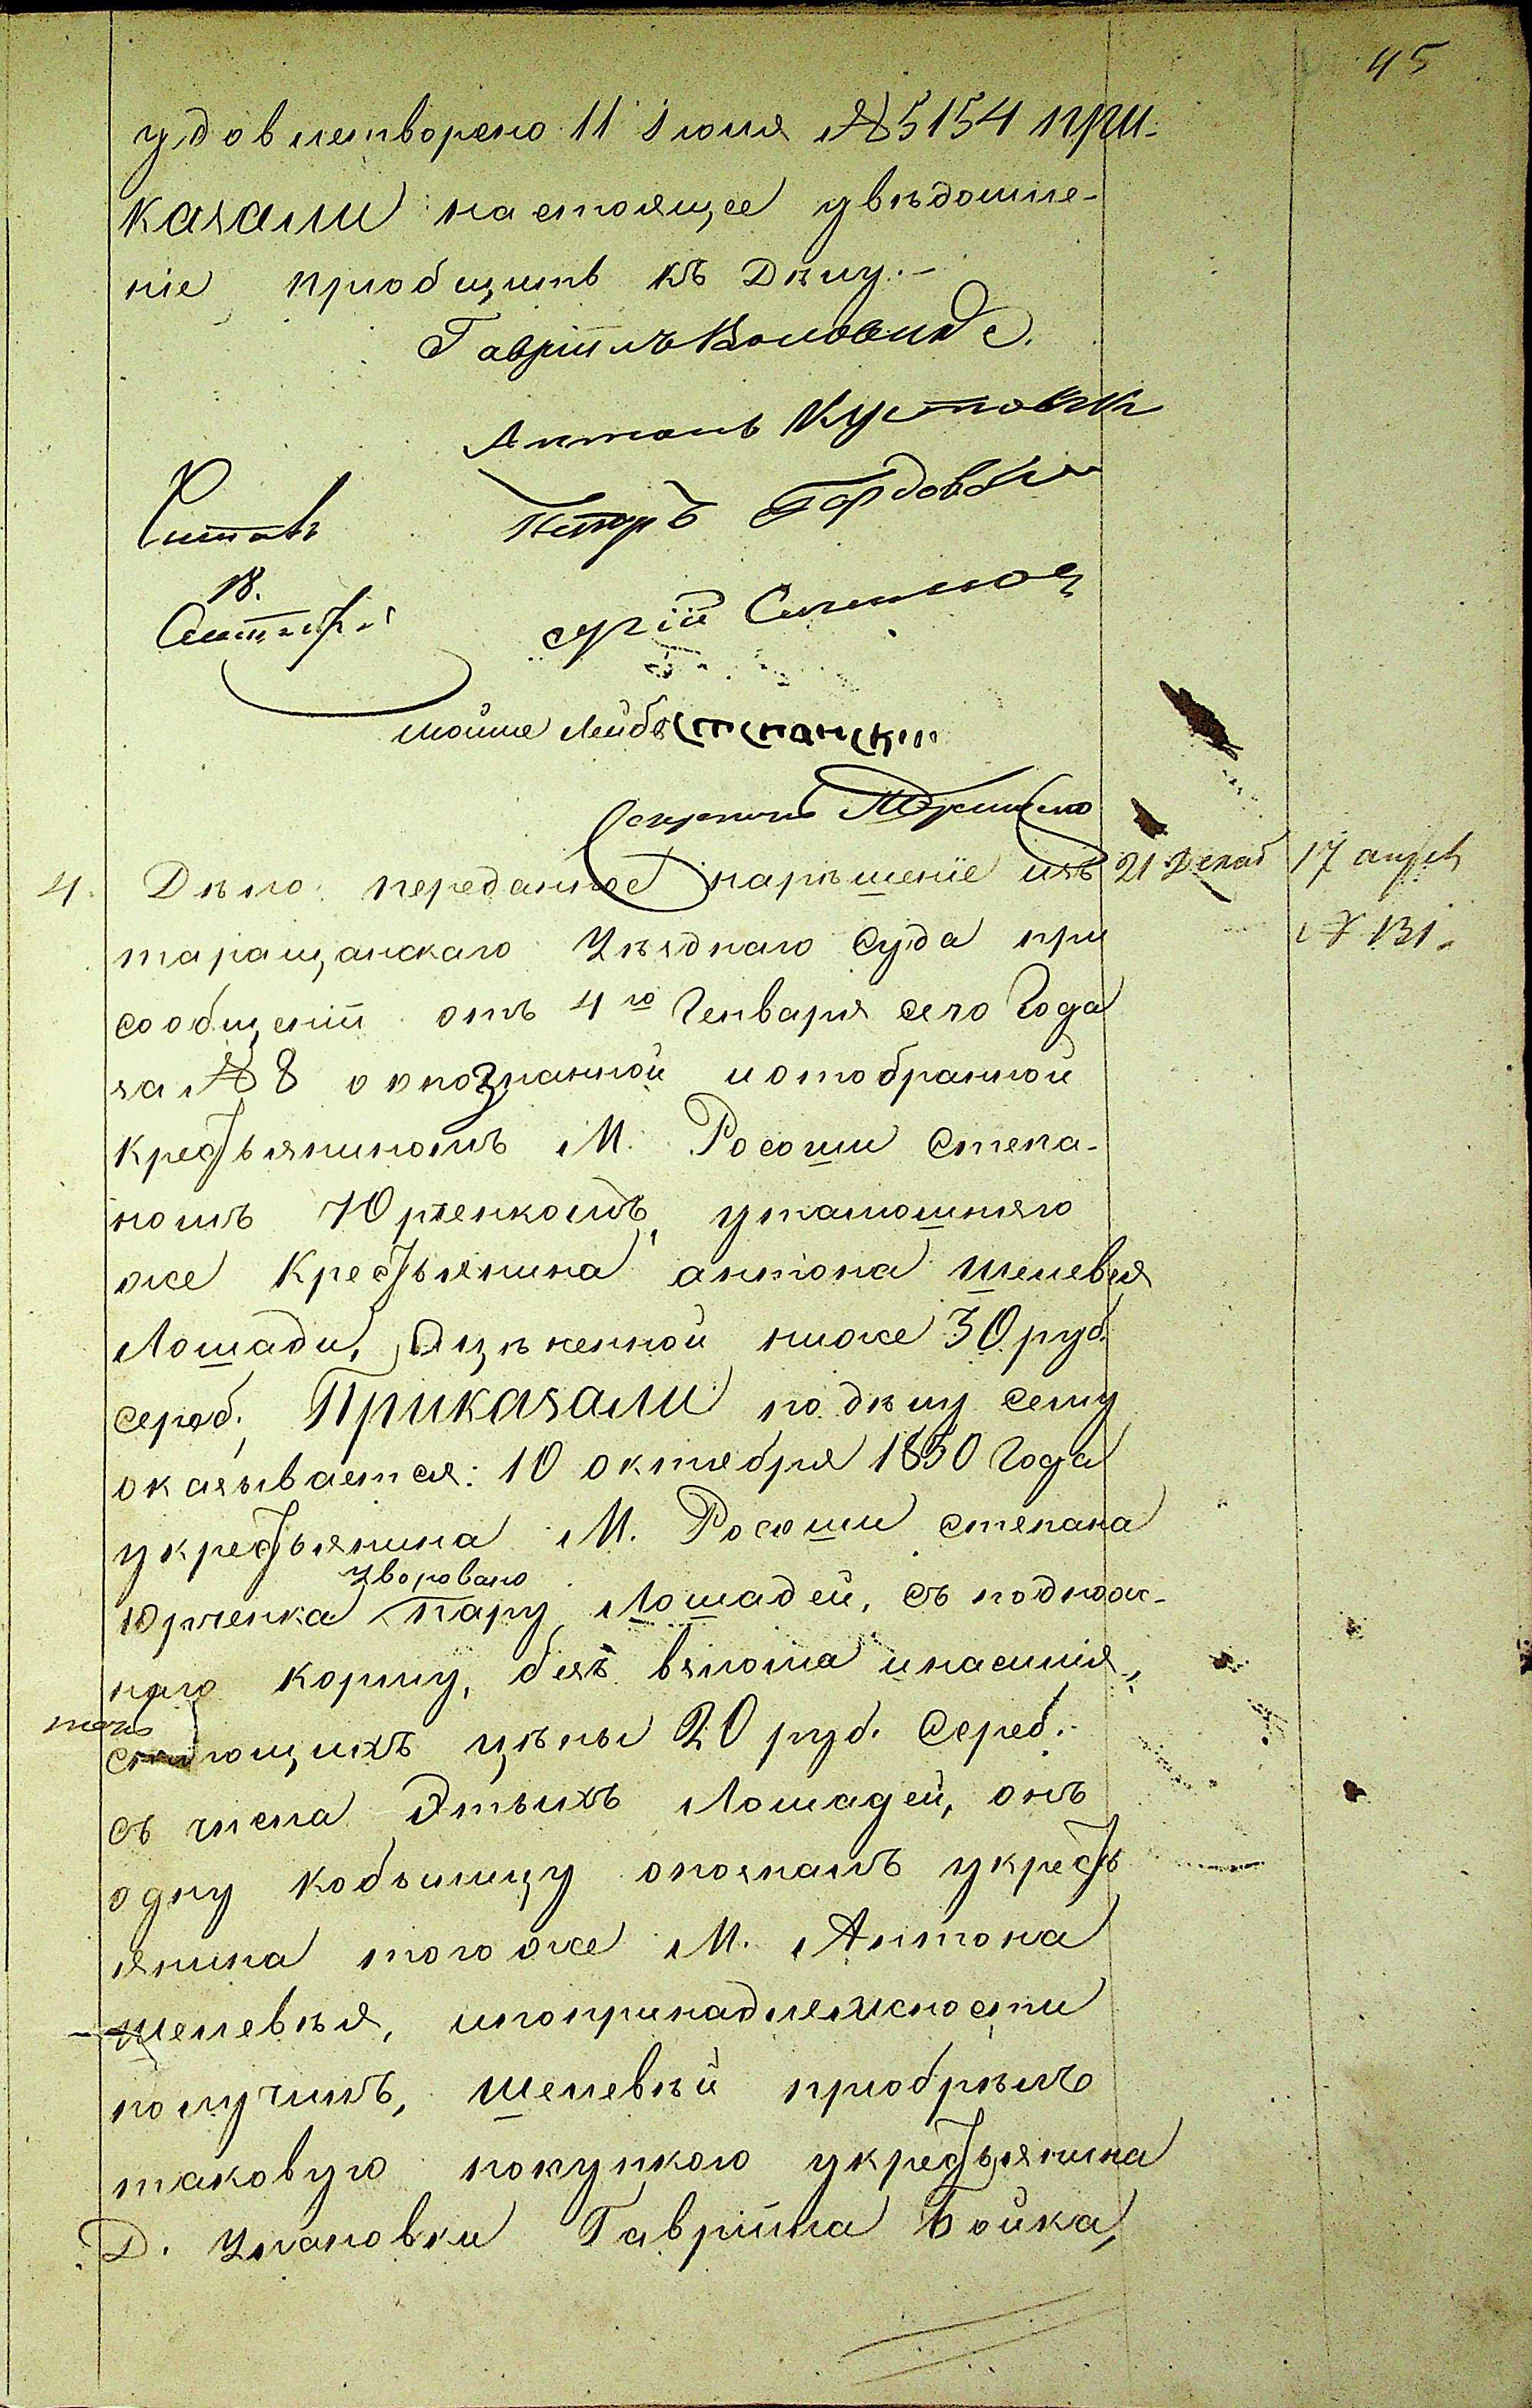 45
удовлетворено 11 Iюля №5154 при-
казали настоящее увѣдомле-
нiе прiобщить къ Дѣлу.-
Гаврiилъ
Антонъ
Читалъ
Петръ
18.
Сергiй
мойше Лейба Степанскiй
Секретарь
4. Дѣло переданное нарѣшенiе изъ 21 Декаб 17 апрел
таращанскаго Уѣзднаго Суда при № 131.
сообщенiи отъ 4го Генваря сего Года
за № 8 о опознанной и отобранной
крестьяниномъ М. Росоши Степа-
номъ Юрченкомъ, утамошняго
же Крестьянина антона шелевѣя
Лошади, Оцѣненной ниже 30 руб.
сереб; Приказали по дѣлу сему
оказывается: 10 октября 1850 Года
укрестьянина М. Росоши степана
уворовано
Юрченка пару Лошадей, съ поднож-
наго корму, безъ взлома инасилiя,
стоющихъ цѣны 20 руб. Сереб.
съ числа Этыхъ Лошадей, онъ
одну кобылицу опозналъ укресть
янина того же М. Антона
шелевѣя, ипопринадлежности
получилъ, шелевѣй прiобрѣлъ
таковую покупкою укрестьянина
Д. Улановки Гаврiила Бойка,